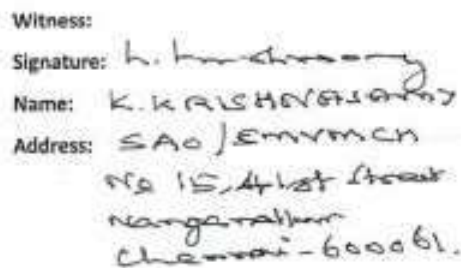 Witness:
Signature:
Name: K. KRISHNASAMY
Address: SAO/EMVMCH
No 15, 41st Street
Nanganallur
Chennai-600061.